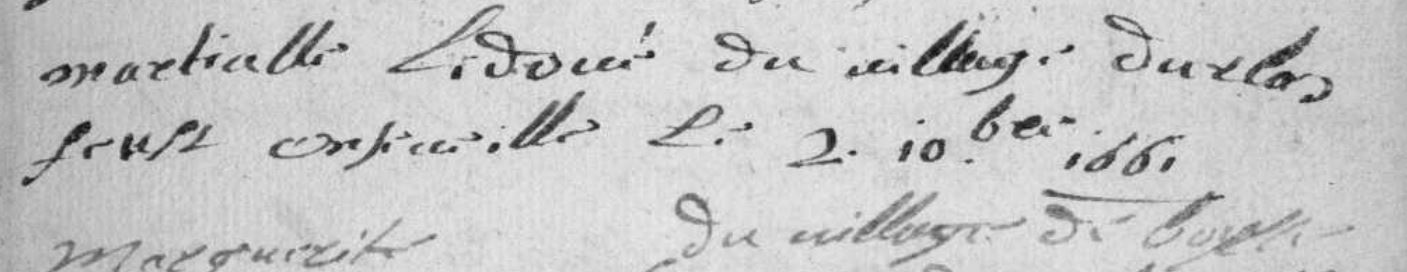 martialle Ledoué du village du clos
feust ensevellie Le 2. 10.bre 1661
Marguerite du village de